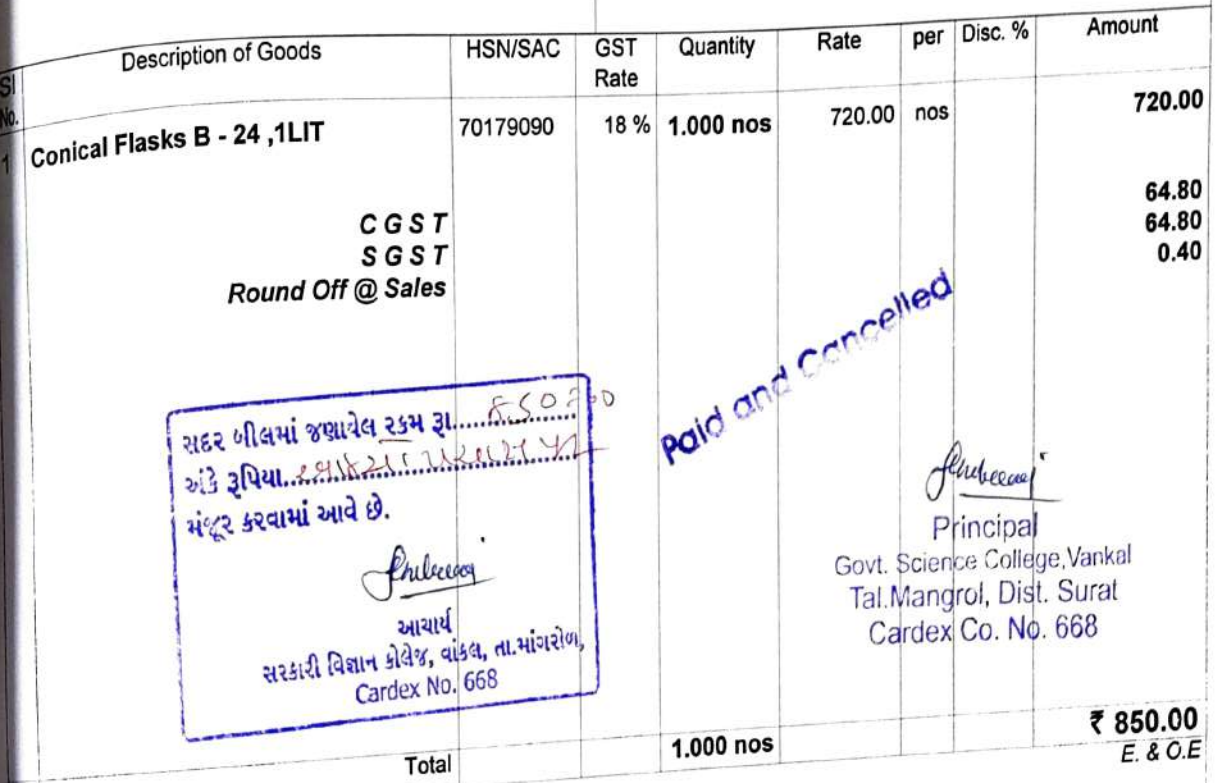 Sl No. Description of Goods HSN/SAC GST Rate Quantity Rate per Disc. % Amount
1 Conical Flasks B - 24 ,1LIT 70179090 18 % 1.000 nos 720.00 nos 720.00
C G S T 64.80
S G S T 64.80
Round Off @ Sales 0.40
Paid and Cancelled
સદર બીલમાં જણાવેલ રકમ રૂા. 850=00
અંકે રૂપિયા. આઠસો પચાસ પુરા
મંજૂર કરવામાં આવે છે.
આચાર્ય
સરકારી વિજ્ઞાન કોલેજ, વાંકલ, તા.માંગરોળ,
Cardex No. 668
Principal
Govt. Science College,Vankal
Tal.Mangrol, Dist. Surat
Cardex Co. No. 668
Total 1.000 nos ₹ 850.00
E. & O.E